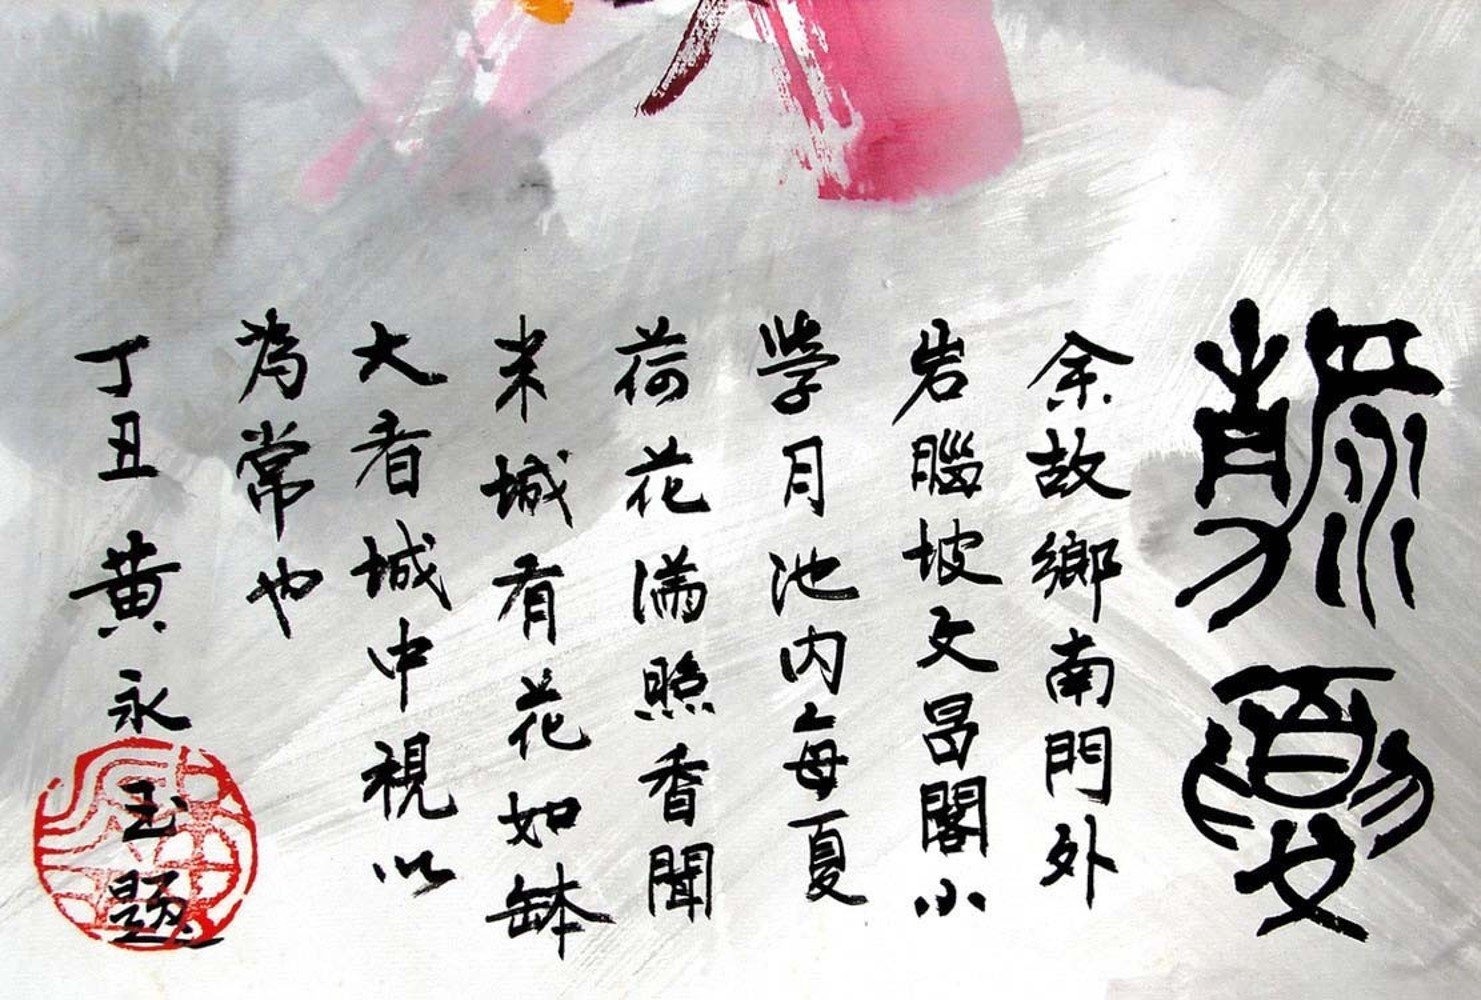 夏
余故鄉南門外
岩腦坡文昌閣小
學月池內每夏
荷花滿照香聞
半城有花如缽
大者城中視以
為常也
丁丑 黃永玉題